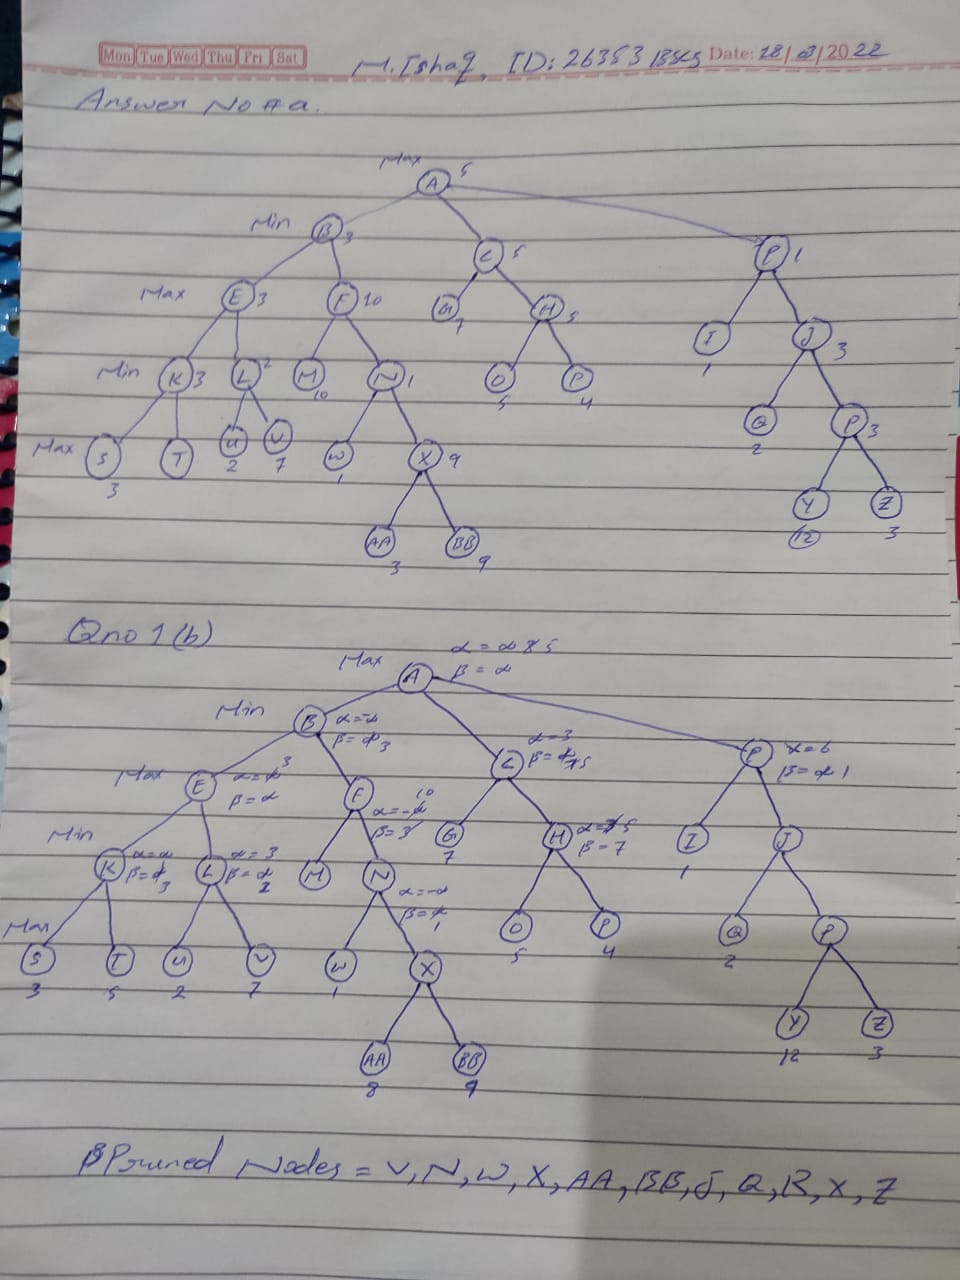 Mon Tue Wed Thu Fri Sat
M. Ishaq, ID: 26353 BSCS Date: 28/8/2022
Answer No # a.
Max A 5
Min B 3 C 5 P 1
Max E 3 F 10 G 7 H 5 I 1 J 3
Min K 3 L 2 M 10 N 1 O 5 P 4 Q 2 P 3
Max S 3 T U 2 V 7 W 1 X 9 Y 12 Z 3
AA 3 BB 9
Qno 1 (b)
Max A α = ∞ 5
β = ∞
Min B α = -∞ β = 3 C α = 3 β = 5 P α = 6 β = 1
Max E α = 3 β = α F 10 α = - β = 3 G 7 H α = 5 β = 7 I 1 J
Min K α = ∞ β = 3 L α = 3 β = 2 M N α = -∞ β = 1 O 5 P 4 Q 2 P
Max S 3 T 5 U 2 V 7 W 1 X Y 12 Z 3
AA 8 BB 9
Pruned Nodes = V, N, W, X, AA, BB, J, Q, R, X, Z